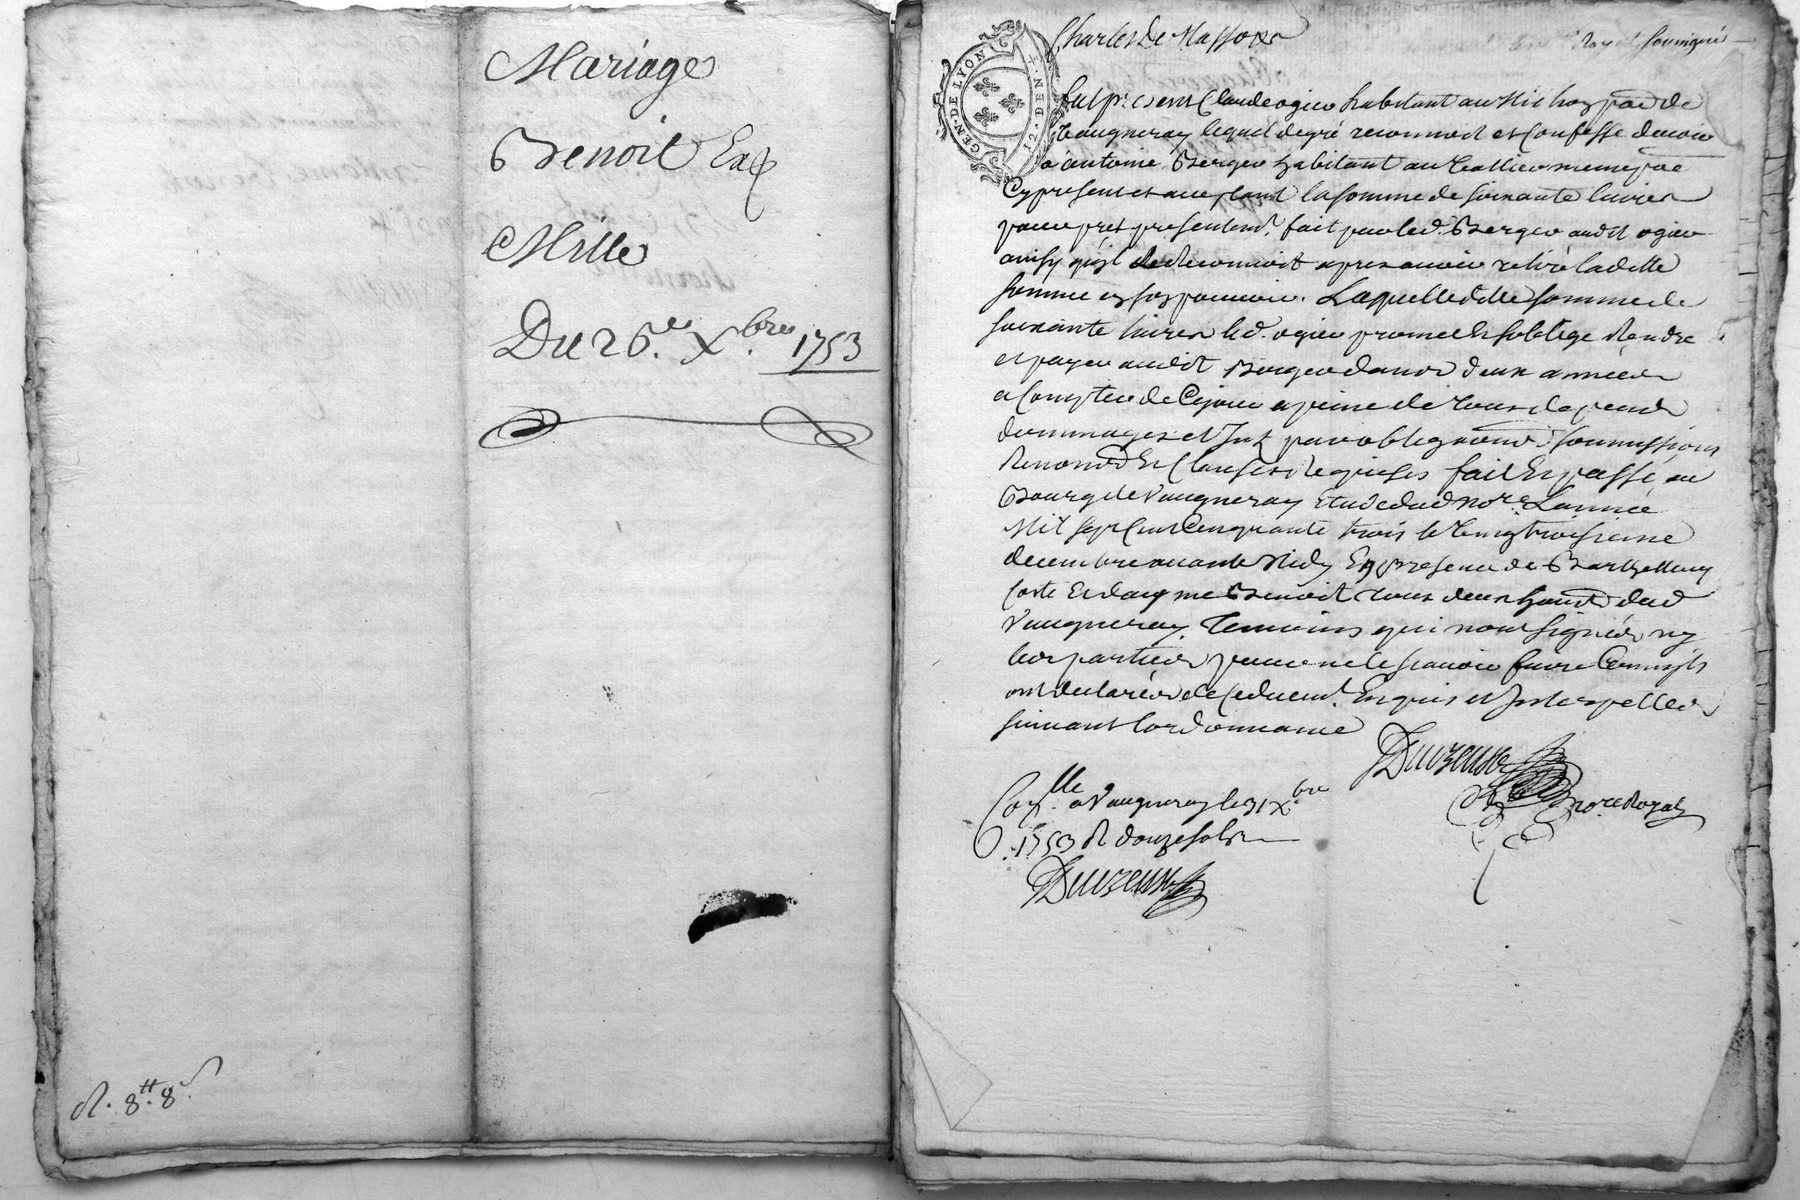 Mariage
Benoit Ea
Mille
Du 26.e Xbre 1753
R. 8.tt 8.s
GEN. DE LYON
12. DEN
Charles De Masso
Royal soussigné
fut present Claude ogier habitant au par de
Vaugneray lequel degré reconnoit et Confesse devoir
a antoine Berger habitant au meme par
Cy present et acceptant la somme de soixante livres
pour prest presentemt. fait par led. Berger audit ogier
ainsy quil le Reconnoit apres avoir retiré laditte
somme en son pouvoir. Laquelle ditte somme de
soixante livres led. ogier promet et soblige Rendre
et payer audit Berger dans deux années
a Compter de Cejour a peine de tous depends
dommages et Int par obligations soumissions
Renond Et Clauses Requises fait Et passé au
Bourg de Vaugneray Etude dud nore. Lannée
Mil sept Cent Cinquante trois le Vingtroisieme
decembre avant Midy En presence de Barthellemy
Coste Et Benoit tous deux dud
Vaugneray. Temoins qui nont signés ny
les parties pour ne le scavoir faire Comm'ils
ont declarés de Ce duemt. Enquis et Interpellés
suivant lordonnance
nore Royal
Conlle. a Vaugneray le 31 Xbre
1753 R douze sols